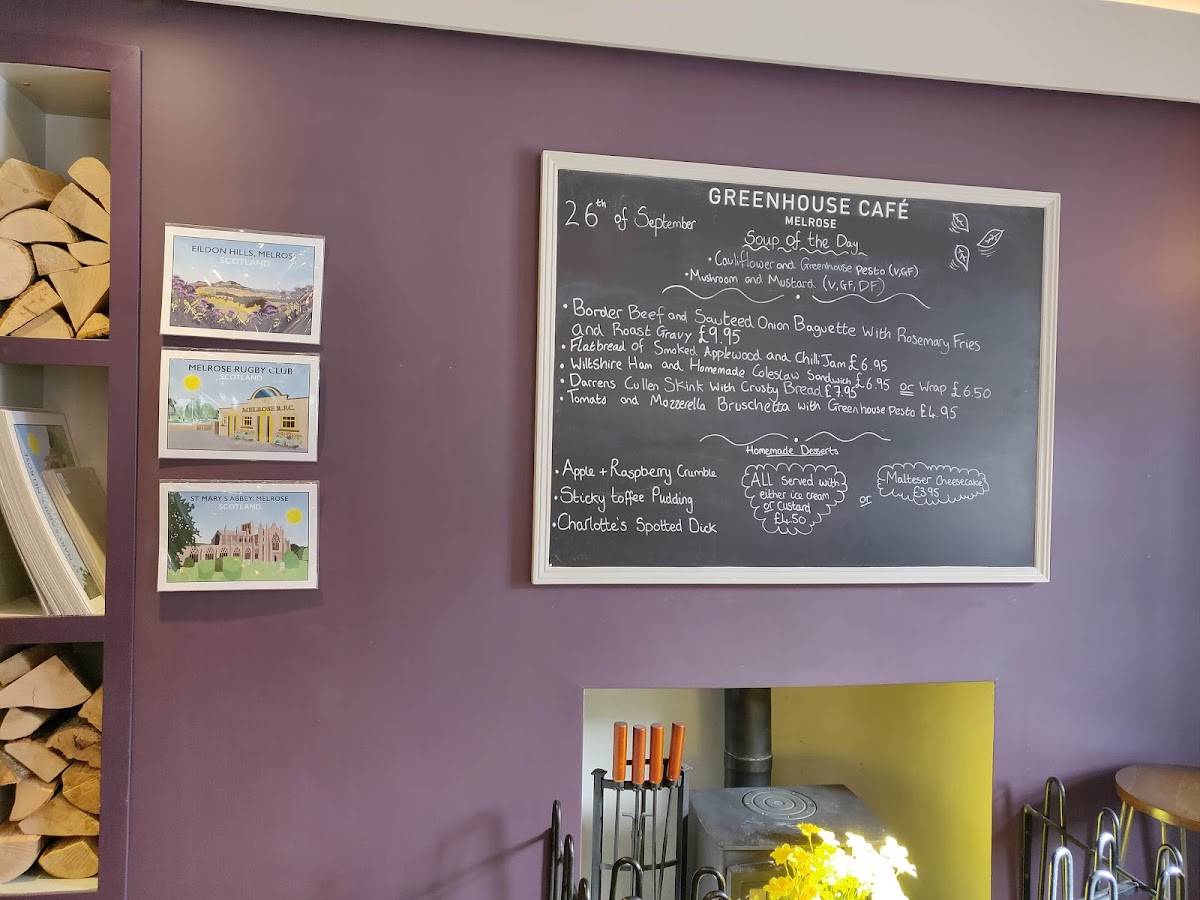 EILDON HILLS, MELROSE
SCOTLAND
MELROSE RUGBY CLUB
SCOTLAND
MELROSE R.F.C.
ST MARY'S ABBEY, MELROSE
SCOTLAND
GREENHOUSE CAFÉ
MELROSE
26th of September
Soup of the Day
• Cauliflower and Greenhouse pesto (V,GF)
• Mushroom and Mustard (V,GF,DF)
• Border Beef and Sauteed Onion Baguette with Rosemary Fries
and Roast Gravy £9.95
• Flatbread of Smoked Applewood and Chilli Jam £6.95
• Wiltshire Ham and Homemade Coleslaw Sandwich £6.95 or Wrap £6.50
• Darrens Cullen Skink with Crusty Bread £7.95
• Tomato and Mozzerella Bruschetta with Greenhouse pesto £4.95
Homemade Desserts
• Apple + Raspberry Crumble
• Sticky toffee Pudding
• Charlotte's Spotted Dick
ALL served with
either ice cream
or custard
£4.50
or
Malteser Cheesecake
£3.95